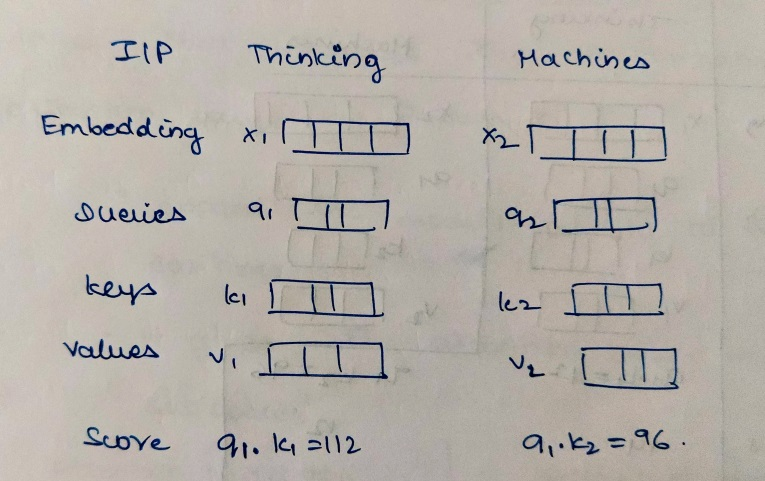 I/P Thinking Machines
Embedding x1 x2
Queries q1 q2
keys k1 k2
values v1 v2
Score q1. k1 =112 q1.k2 = 96.